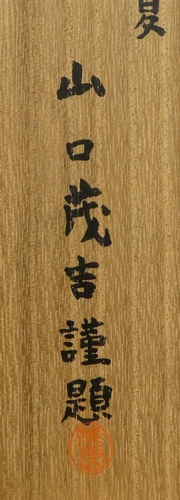 夏
山口茂吉謹題